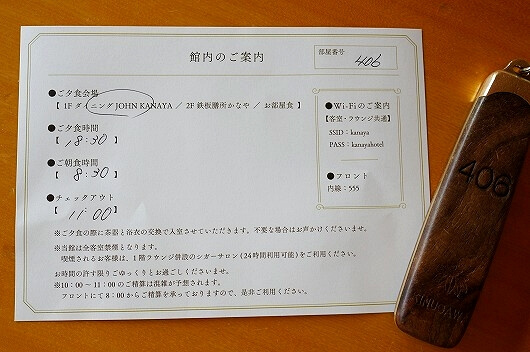 館内のご案内
部屋番号
406
●ご夕食会場
【 1F ダイニング JOHN KANAYA ／ 2F 鉄板膳所かなや ／ お部屋食 】
●ご夕食時間
【 18:30 】
●ご朝食時間
【 8:30 】
●チェックアウト
【 11:00 】
●Wi-Fiのご案内
【客室・ラウンジ共通】
SSID：kanaya
PASS：kanayahotel
●フロント
内線：555
※ご夕食の際に茶器と浴衣の交換で入室させていただきます。不要な場合はお声かけくださいませ。
※当館は全客室禁煙となります。
喫煙されるお客様は、1階ラウンジ併設のシガーサロン（24時間利用可能）をご利用ください。
お時間の許す限りごゆっくりとお過ごしくださいませ。
※10：00～11：00のご精算は混雑が予想されます。
フロントにて8：00からご精算を承っておりますので、是非ご利用ください。
406